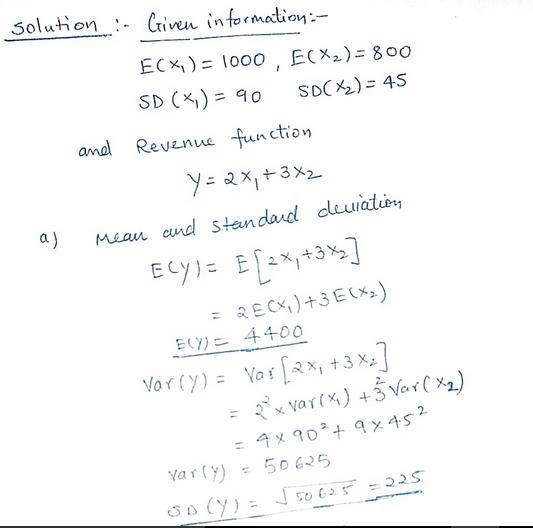 Solution :- Given information:-
E(X₁) = 1000 , E(X₂) = 800
SD (X₁) = 90 SD(X₂) = 45
and Revenue function
Y = 2X₁ + 3X₂
a) Mean and standard deviation
E(Y) = E[2X₁ + 3X₂]
= 2E(X₁) + 3E(X₂)
E(Y) = 4400
Var(Y) = Var[2X₁ + 3X₂]
= 2² x Var(X₁) + 3² Var(X₂)
= 4 x 90² + 9 x 45²
Var(Y) = 50625
SD(Y) = √50625 = 225